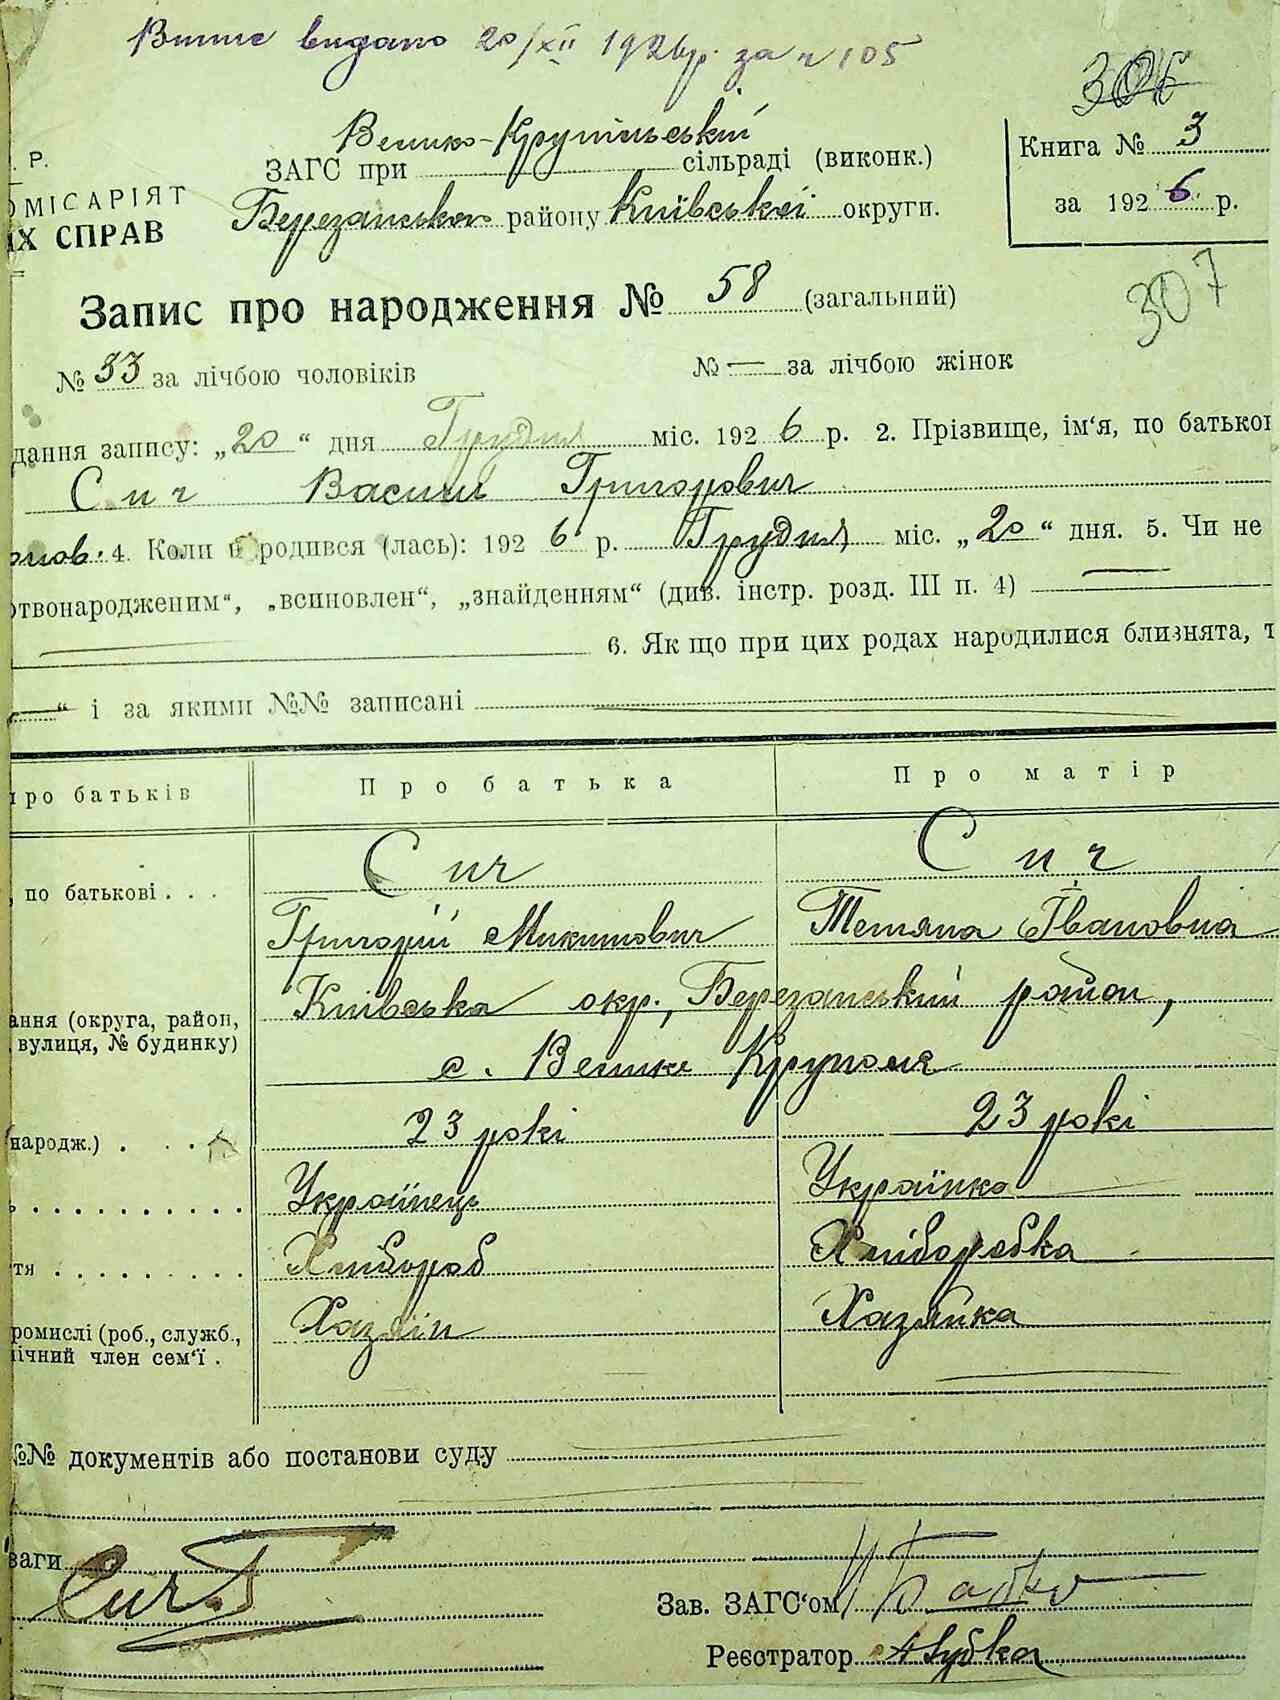 Випис видано 20/XII 1926р. за ч 105
306
Велико-Крупільській
. Р.
ЗАГС при сільраді (виконк.)
Книга № 3
ОМІСАРІЯТ
Березанського району Київської округи.
за 1926 р.
ИХ СПРАВ
307
Запис про народження № 58 (загальний)
№ 33 за лічбою чоловіків № — за лічбою жінок
дання запису: „20“ дня Грудня міс. 1926 р. 2. Прізвище, ім‘я, по батькові
Сич Василь Григорович
4. Коли народився (лась): 1926 р. Грудня міс. „20“ дня. 5. Чи не
ртвонародженим“, „всиновлен“, „знайденням“ (див. інстр. розд. III п. 4) —
6. Як що при цих родах народилися близнята, т
—“ і за якими №№ записані
про батьків Про батька Про матір
Сич Сич
, по батькові . . .
Григорій Микитович Тетяна Івановна
Київська окр., Березанський район,
ання (округа, район,
вулиця, № будинку)
с. Велике Крупол
народж.) . . . 23 рокі 23 рокі
Українець Українка
тя . . . . . . . . . Хлібороб Хліборобка
ромислі (роб., служб., Хазяїн Хазяйка
ічний член сем‘ї .
№№ документів або постанови суду
ваги Сич
Зав. ЗАГС‘ом Бабко
Реєстратор